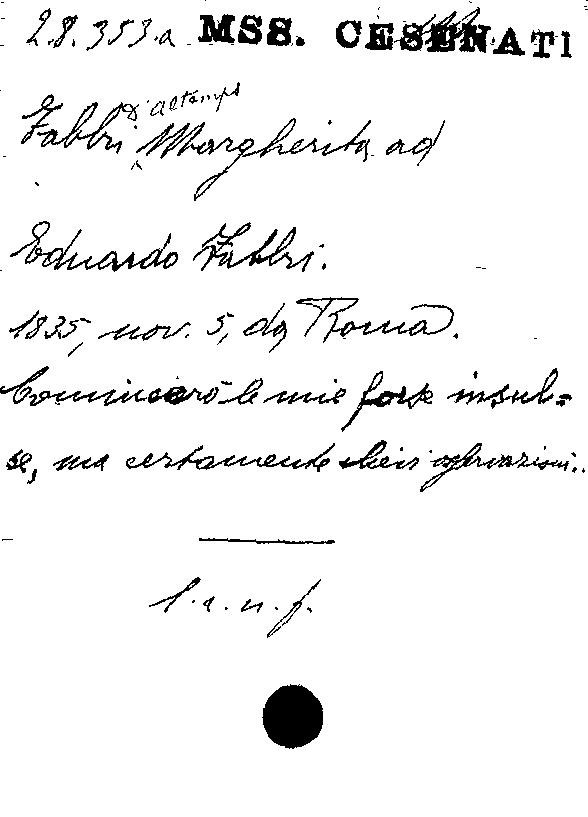 28.353.a MSS. CESENATI
D'Altemps
Fabbri Margherita ad
Eduardo Fabbri.
1835, nov. 5, da Roma.
Comincerò le mie forse insul=
se, ma certamente osservazioni..
l.a.n.f.